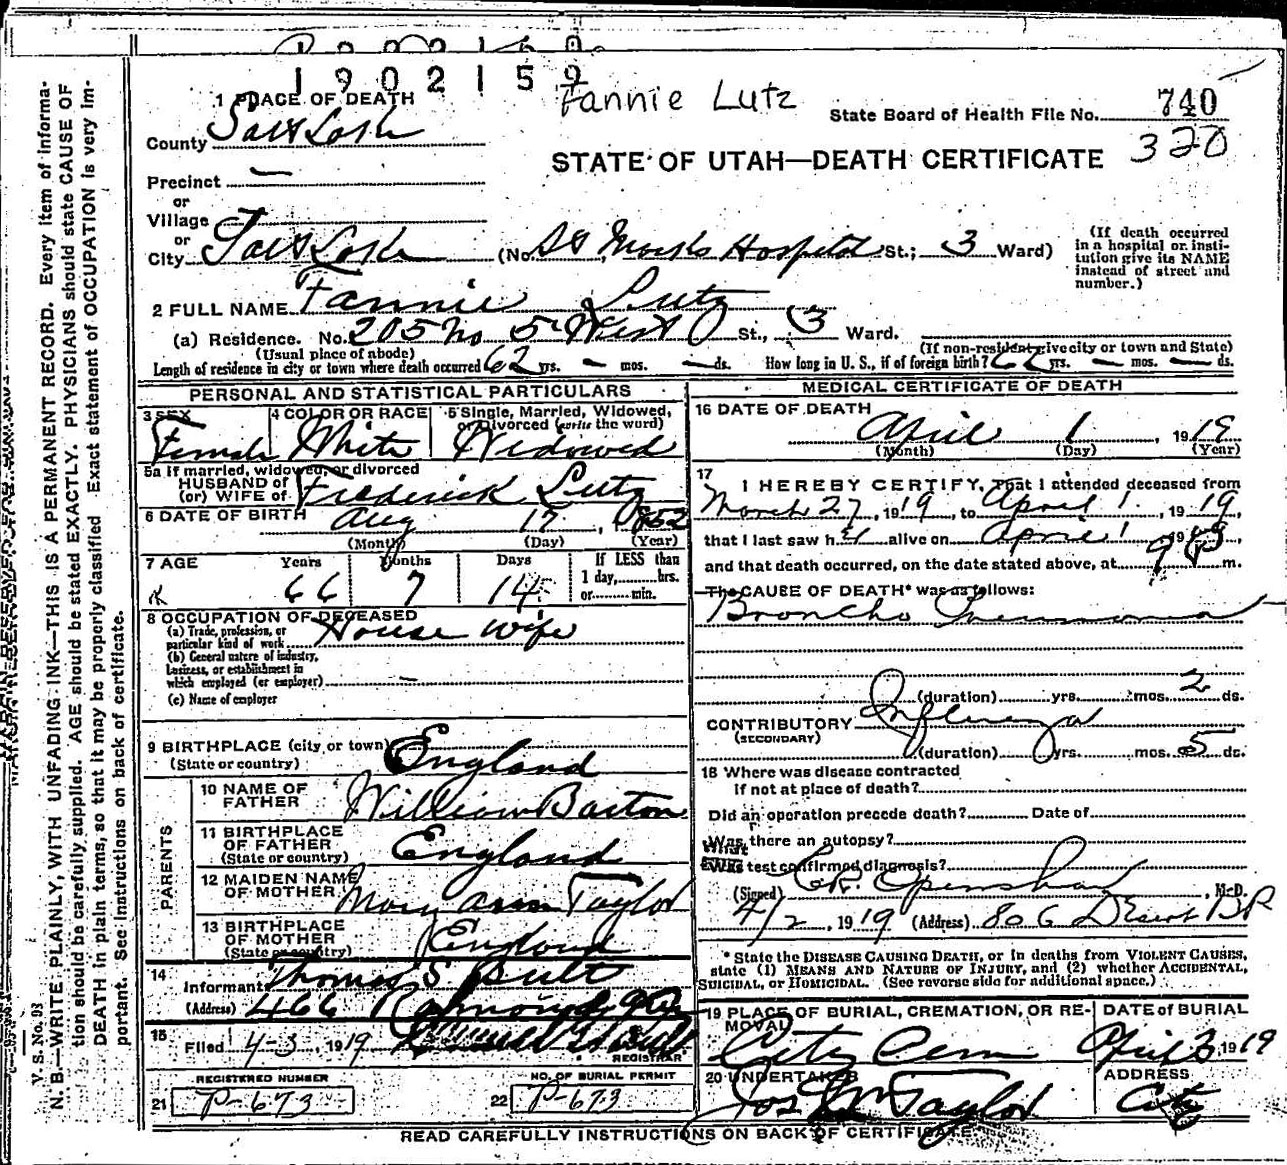 1902159
Fannie Lutz
State Board of Health File No. 740
320
STATE OF UTAH—DEATH CERTIFICATE
1 PLACE OF DEATH
County Salt Lake
Precinct —
or
Village
or
City Salt Lake (No. St Marks Hospital St.; 3 Ward)
(If death occurred in a hospital or institution give its NAME instead of street and number.)
2 FULL NAME Fannie Lutz
(a) Residence. No. 205 No 5 West St., 3 Ward.
(Usual place of abode) (If non-resident give city or town and State)
Length of residence in city or town where death occurred 62 yrs. — mos. — ds. How long in U. S., if of foreign birth? 62 yrs. — mos. — ds.
PERSONAL AND STATISTICAL PARTICULARS
3 SEX Female
4 COLOR OR RACE White
5 Single, Married, Widowed, or Divorced (write the word) Widowed
5a If married, widowed, or divorced
HUSBAND of
(or) WIFE of Frederick Lutz
6 DATE OF BIRTH Aug 17, 1852
(Month) (Day) (Year)
7 AGE Years 66 Months 7 Days 14
If LESS than
1 day,........hrs.
or........min.
8 OCCUPATION OF DECEASED
(a) Trade, profession, or
particular kind of work House Wife
(b) General nature of industry,
business, or establishment in
which employed (or employer) —
(c) Name of employer
9 BIRTHPLACE (city or town)
(State or country) England
PARENTS
10 NAME OF
FATHER William Barton
11 BIRTHPLACE
OF FATHER
(State or country) England
12 MAIDEN NAME
OF MOTHER Mary Ann Taylor
13 BIRTHPLACE
OF MOTHER
(State or country) England
14
Informant Thomas S
(Address) 466
15
Filed 4-3, 1919
REGISTRAR
REGISTERED NUMBER
21 P-673
NO. OF BURIAL PERMIT
22 P-673
MEDICAL CERTIFICATE OF DEATH
16 DATE OF DEATH
April 1, 1919
(Month) (Day) (Year)
17
I HEREBY CERTIFY, That I attended deceased from
March 27, 1919, to April 1, 1919,
that I last saw her alive on April 1 19
and that death occurred, on the date stated above, at m.
The CAUSE OF DEATH* was as follows:
Broncho Pneumonia
(duration) yrs. mos. 2 ds.
CONTRIBUTORY Influenza
(SECONDARY)
(duration) yrs. mos. 5 ds.
18 Where was disease contracted
if not at place of death?
Did an operation precede death? Date of
Was there an autopsy?
What test confirmed diagnosis?
(Signed) Openshaw, M.D.
4/2, 1919 (Address) 806
* State the DISEASE CAUSING DEATH, or in deaths from VIOLENT CAUSES,
state (1) MEANS AND NATURE OF INJURY, and (2) whether ACCIDENTAL,
SUICIDAL, or HOMICIDAL. (See reverse side for additional space.)
19 PLACE OF BURIAL, CREMATION, OR REMOVAL
City Cem
DATE of BURIAL
April 3, 1919
20 UNDERTAKER
Jos Wm Taylor
ADDRESS
City
READ CAREFULLY INSTRUCTIONS ON BACK OF CERTIFICATE
V. S. No. 93
N. B.—WRITE PLAINLY, WITH UNFADING INK—THIS IS A PERMANENT RECORD. Every item of information should be carefully supplied. AGE should be stated EXACTLY. PHYSICIANS should state CAUSE OF DEATH in plain terms, so that it may be properly classified. Exact statement of OCCUPATION is very important. See instructions on back of certificate.